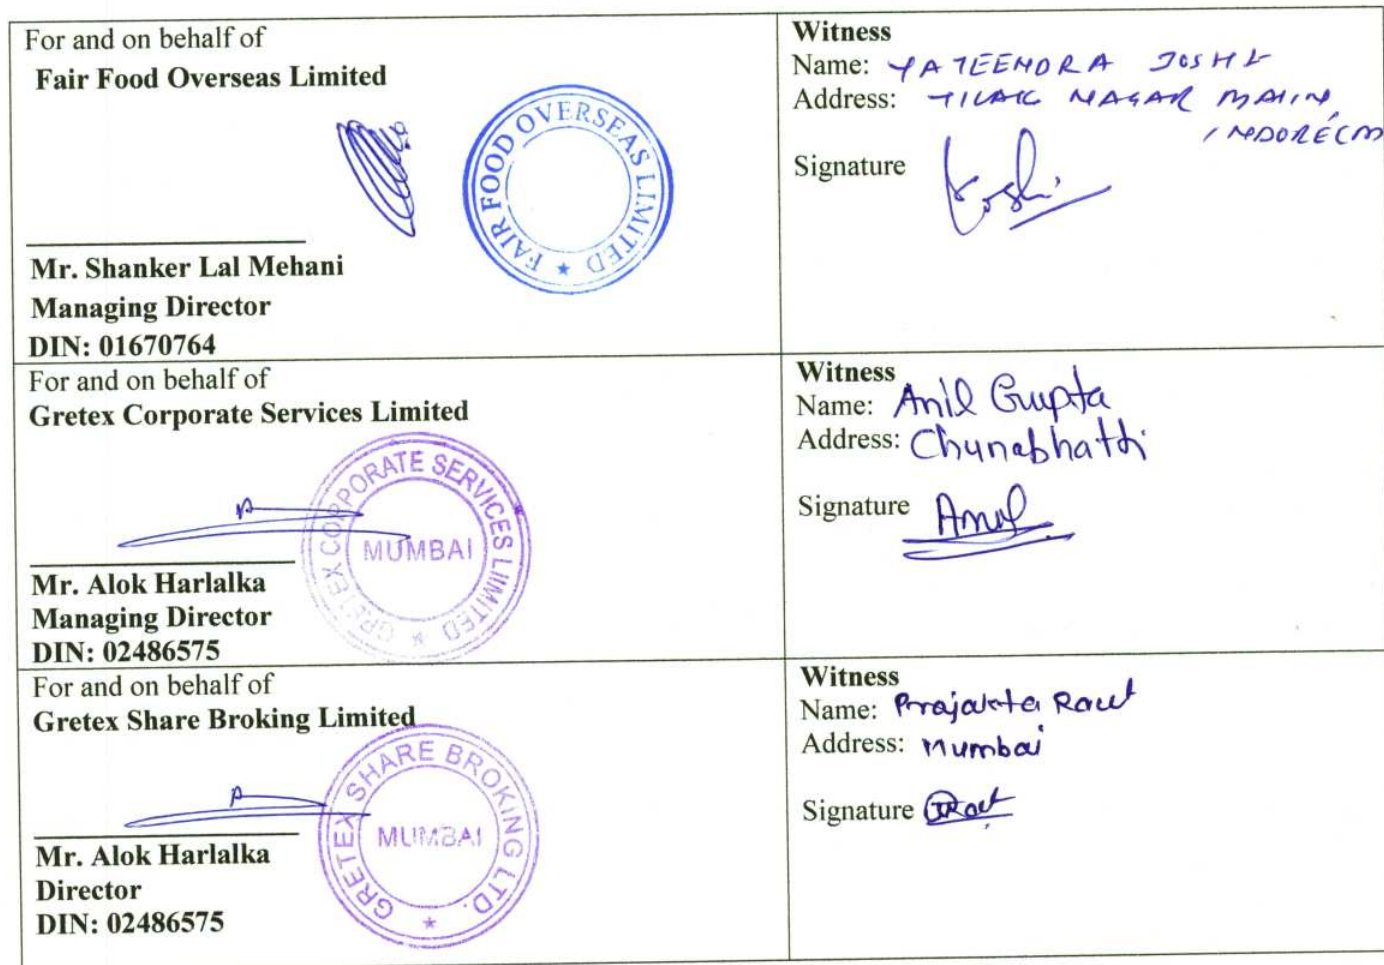 For and on behalf of
Fair Food Overseas Limited
FAIR FOOD OVERSEAS LIMITED ★
Mr. Shanker Lal Mehani
Managing Director
DIN: 01670764
Witness
Name: YATEENDRA JOSHI
Address: TILAK NAGAR MAIN,
INDORE
Signature
Joshi
For and on behalf of
Gretex Corporate Services Limited
GRETEX CORPORATE SERVICES LIMITED ★
MUMBAI
Mr. Alok Harlalka
Managing Director
DIN: 02486575
Witness
Name: Anil Gupta
Address: Chunabhatti
Signature
For and on behalf of
Gretex Share Broking Limited
GRETEX SHARE BROKING LTD. ★
MUMBAI
Mr. Alok Harlalka
Director
DIN: 02486575
Witness
Name: Prajakta Raut
Address: Mumbai
Signature